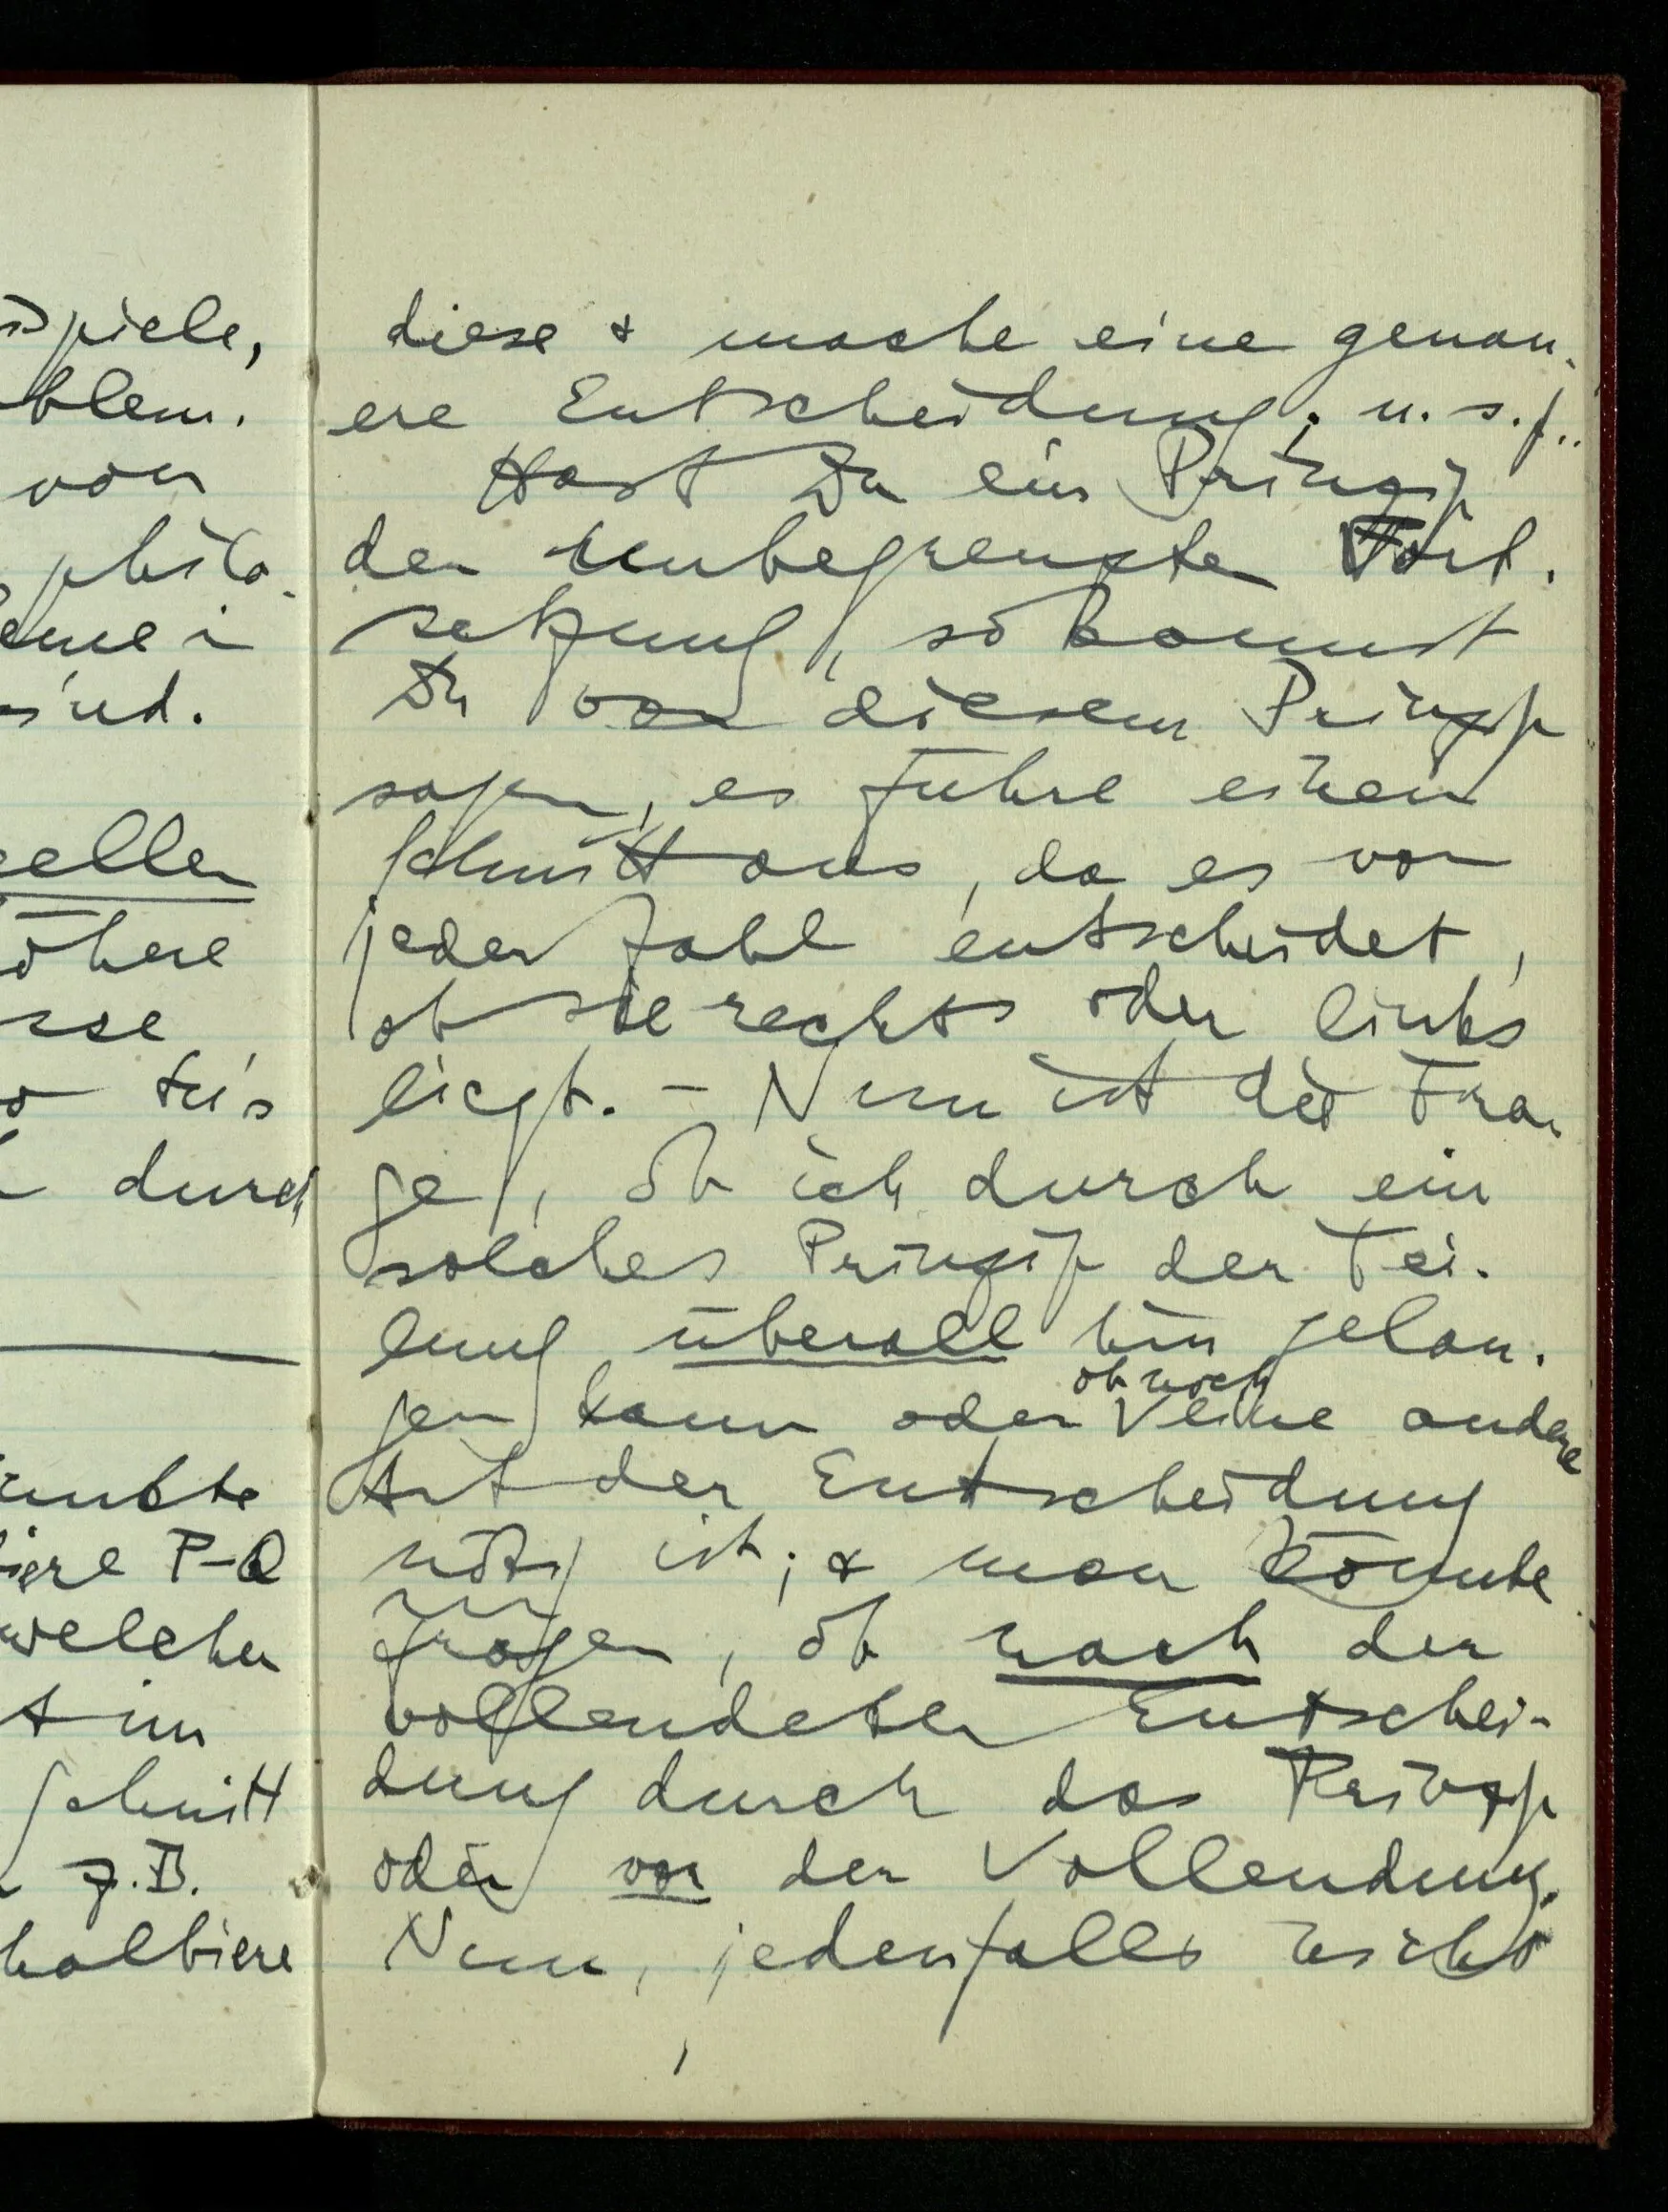 spiele,
blem.
von
philo-
eme i
sind.
ellen
öhere
sse
teils
durch
unkte
iere P-Q
welcher
t im
Schnitt
z.B.
halbiere
diese & mache eine genau-
ere Entscheidung; u.s.f..
Hast Du ein Prinzip
der unbegrenzten Fort-
setzung, so kannst
Du von diesem Prinzip
sagen, es führe einen
Schnitt aus, da es von
jeder Zahl entscheidet,
ob sie rechts oder links
liegt. – Nun ist die Fra-
ge, ob ich durch ein
solches Prinzip der Tei-
lung überall hin gelan-
gen kann oder ob noch eine andere
Art der Entscheidung
nötig ist; & man könnte
fragen, ob nach der
vollendeten Entschei-
dung durch das Prinzip
oder vor der Vollendung.
Nun, jedenfalls nicht